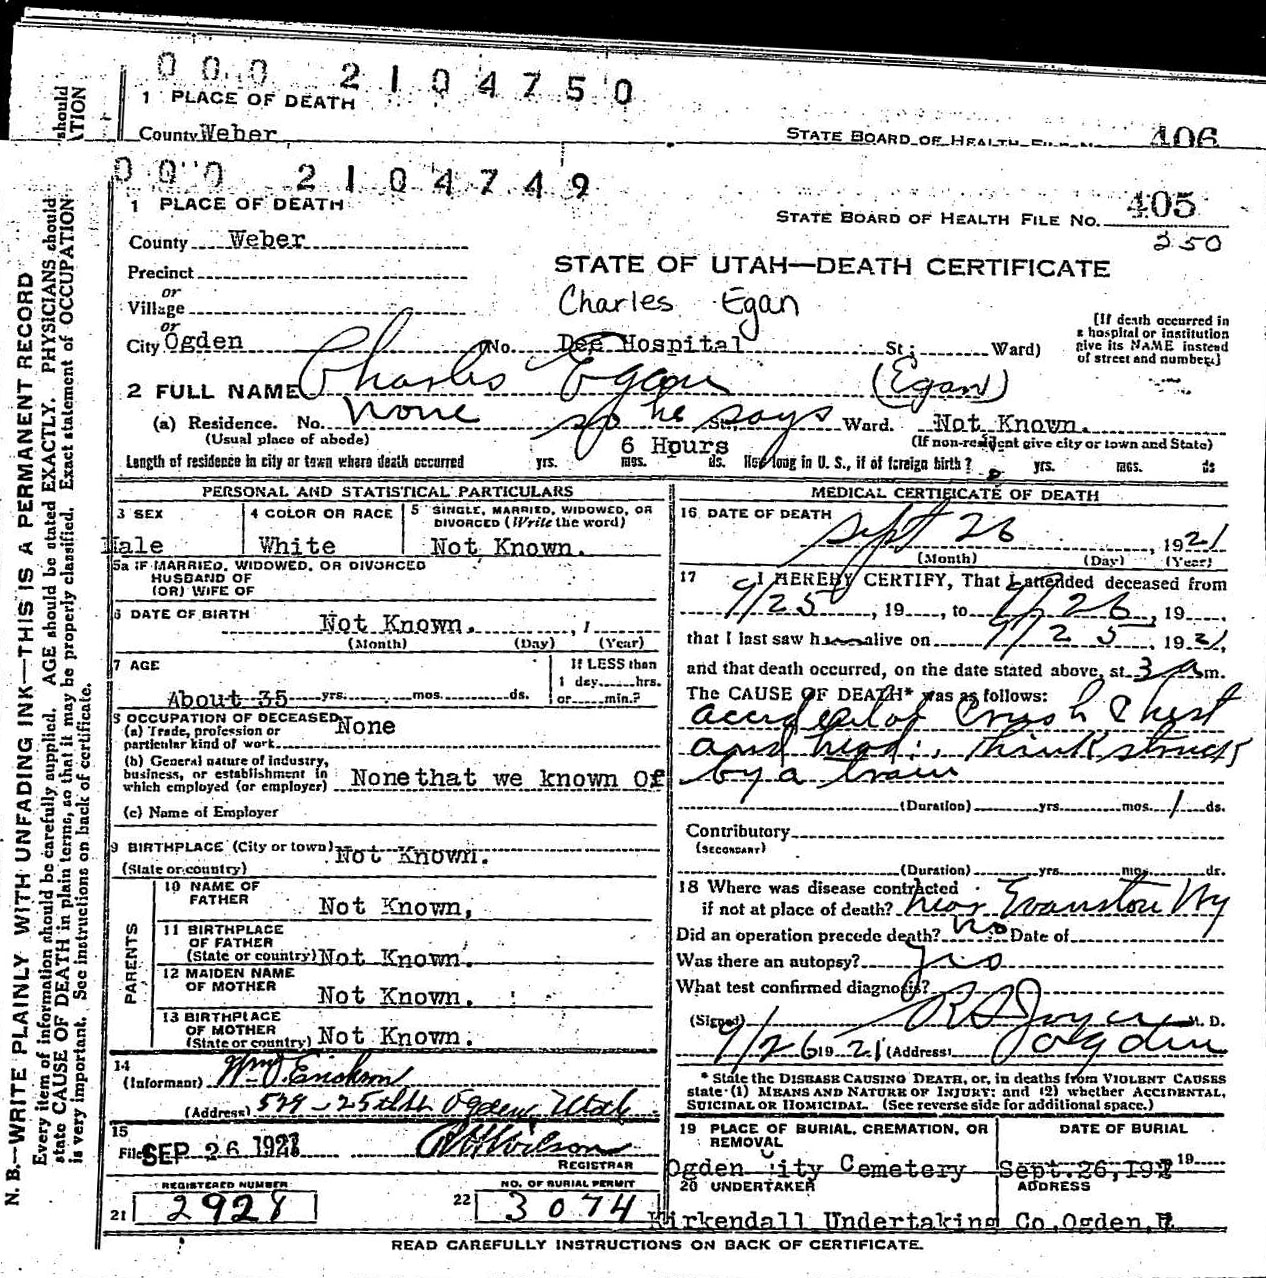 should
ATION
000 2104750
1 PLACE OF DEATH
County Weber
STATE BOARD OF HEALTH FILE No. 406
000 2104749
1 PLACE OF DEATH
STATE BOARD OF HEALTH FILE NO. 405
250
County Weber
STATE OF UTAH—DEATH CERTIFICATE
Precinct
or
Village
Charles Egan
or
City Ogden (No. Dee Hospital St; Ward)
(If death occurred in a hospital or institution give its NAME instead of street and number.)
2 FULL NAME Charles Egan (Egan)
(a) Residence. No. none so he says St., Ward. Not Known.
(Usual place of abode)
(If non-resident give city or town and State)
6 Hours
Length of residence in city or town where death occurred yrs. mos. ds. How long in U. S., if of foreign birth? yrs. mos. ds
PERSONAL AND STATISTICAL PARTICULARS
3 SEX
Male
4 COLOR OR RACE
White
5 SINGLE, MARRIED, WIDOWED, OR DIVORCED (Write the word)
Not Known.
5a IF MARRIED, WIDOWED, OR DIVORCED
HUSBAND OF
(OR) WIFE OF
6 DATE OF BIRTH
Not Known.
(Month) (Day) (Year)
7 AGE
About 35 yrs. mos. ds.
If LESS than
1 day hrs.
or min.?
8 OCCUPATION OF DECEASED
(a) Trade, profession or
particular kind of work
None
(b) General nature of industry,
business, or establishment in
which employed (or employer)
None that we known Of
(c) Name of Employer
9 BIRTHPLACE (City or town) Not Known.
(State or country)
PARENTS
10 NAME OF
FATHER
Not Known,
11 BIRTHPLACE
OF FATHER
(State or country) Not Known.
12 MAIDEN NAME
OF MOTHER
Not Known.
13 BIRTHPLACE
OF MOTHER
(State or country) Not Known.
14
(Informant) Wm J Erickson
(Address) 529 - 25th St Ogden, Utah
15
Filed SEP 26 1921
REGISTRAR
REGISTERED NUMBER
21 2928
NO. OF BURIAL PERMIT
22 3074
MEDICAL CERTIFICATE OF DEATH
16 DATE OF DEATH
Sept 26, 1921
(Month) (Day) (Year)
17 I HEREBY CERTIFY, That I attended deceased from
9/25, 19, to 9/26, 19
that I last saw him alive on 9/25, 1921,
and that death occurred, on the date stated above, at 3 a m.
The CAUSE OF DEATH* was as follows:
accidental Crush Chest
and head. think struck
by a train
(Duration) yrs. mos. 1 ds.
Contributory
(SECONDARY)
(Duration) yrs. mos. ds.
18 Where was disease contracted
if not at place of death? near Evanston Wy
Did an operation precede death? no Date of
Was there an autopsy?
What test confirmed diagnosis?
(Signed) R S Joyce M. D.
9/26 1921 (Address) Ogden
* State the DISEASE CAUSING DEATH, or, in deaths from VIOLENT CAUSES
state (1) MEANS AND NATURE OF INJURY; and (2) whether ACCIDENTAL,
SUICIDAL OR HOMICIDAL. (See reverse side for additional space.)
19 PLACE OF BURIAL, CREMATION, OR
REMOVAL
Ogden City Cemetery
DATE OF BURIAL
Sept. 26, 192 19
20 UNDERTAKER
Kirkendall Undertaking Co.
ADDRESS
Ogden, U
READ CAREFULLY INSTRUCTIONS ON BACK OF CERTIFICATE.
N. B.—WRITE PLAINLY WITH UNFADING INK—THIS IS A PERMANENT RECORD
Every item of information should be carefully supplied. AGE should be stated EXACTLY. PHYSICIANS should
state CAUSE OF DEATH in plain terms, so that it may be properly classified. Exact statement of OCCUPATION
is very important. See instructions on back of certificate.